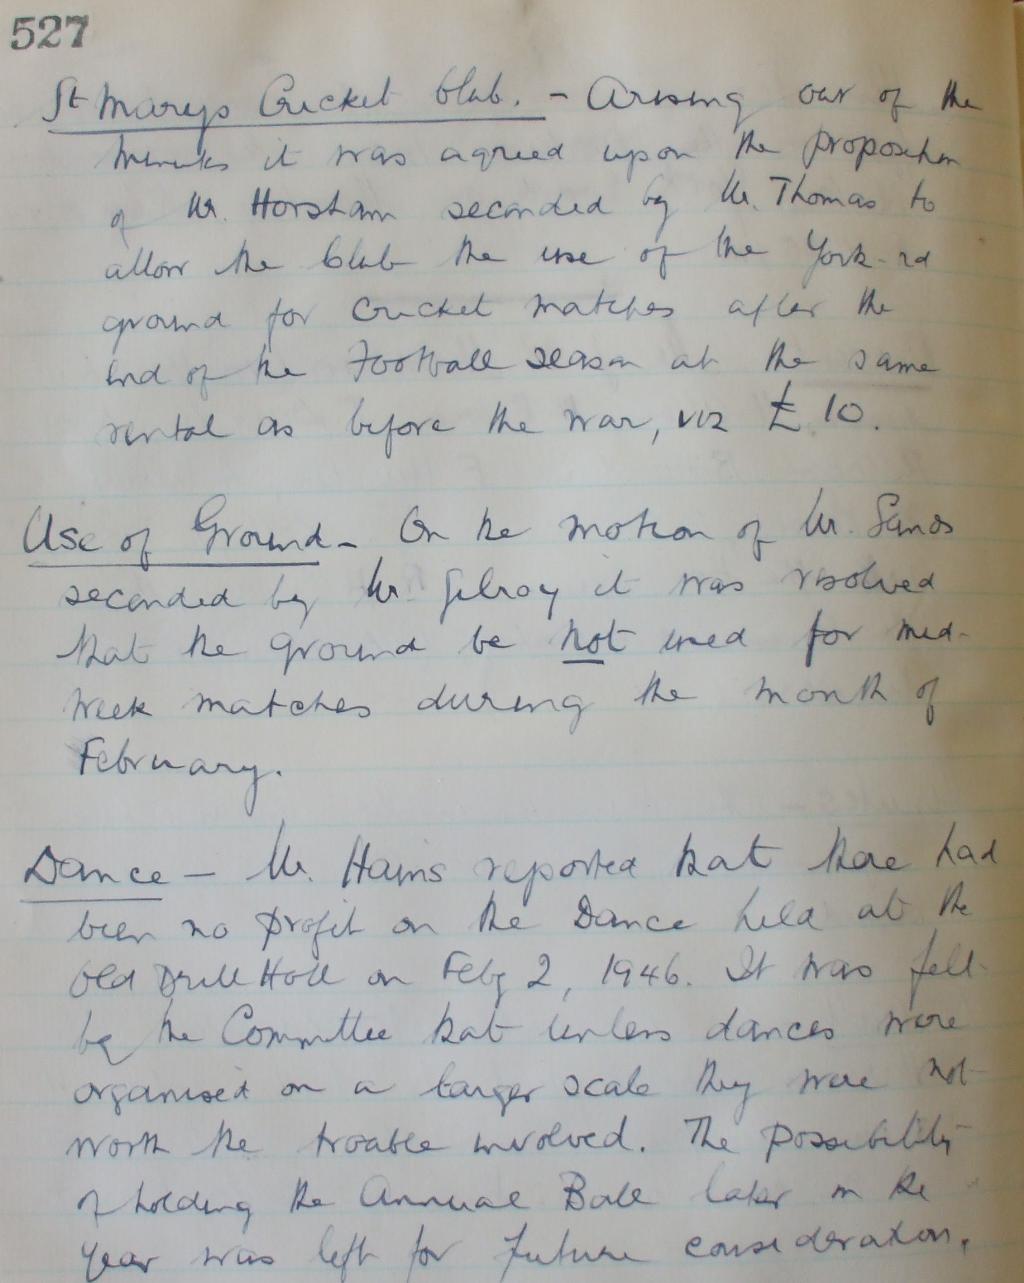 527
St Marys Cricket Club. - Arising out of the
minutes it was agreed upon the proposition
of Mr. Horsham seconded by Mr. Thomas to
allow the Club the use of the York-rd
ground for Cricket matches after the
end of the Football season at the same
rental as before the war, viz £10.
Use of Ground - On the motion of Mr. Sands
seconded by Mr. Gilroy it was resolved
that the ground be not used for mid-
week matches during the month of
February.
Dance - Mr. Hains reported that there had
been no profit on the Dance held at the
Old Drill Hall on Feby 2, 1946. It was felt
by the Committee that unless dances were
organised on a larger scale they were not
worth the trouble involved. The possibility
of holding the Annual Ball later in the
year was left for future consideration.